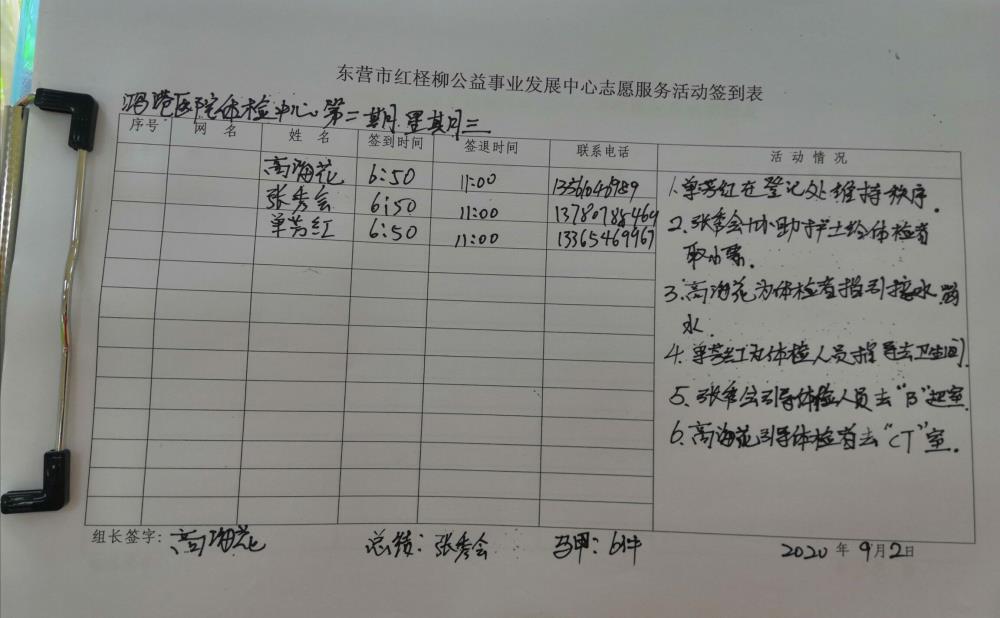 东营市红柽柳公益事业发展中心志愿服务活动签到表
鸿港医院体检中心第二期星期三
序号 网名 姓名 签到时间 签退时间 联系电话 活动情况
高海花 6:50 11:00
张秀会 6:50 11:00 13780788469
单芳红 6:50 11:00 13365469967
1.单芳红在登记处维持秩序.
2.张秀会协助护士给体检者
取小票.
3.高海花为体检者指引接水
水.
4.单芳红为体检人员指导去卫生间.
5.张秀会引导体检人员去"B"超室.
6.高海花引导体检者去"CT"室.
组长签字:高海花 总结:张秀会 马甲:6件 2020年9月2日